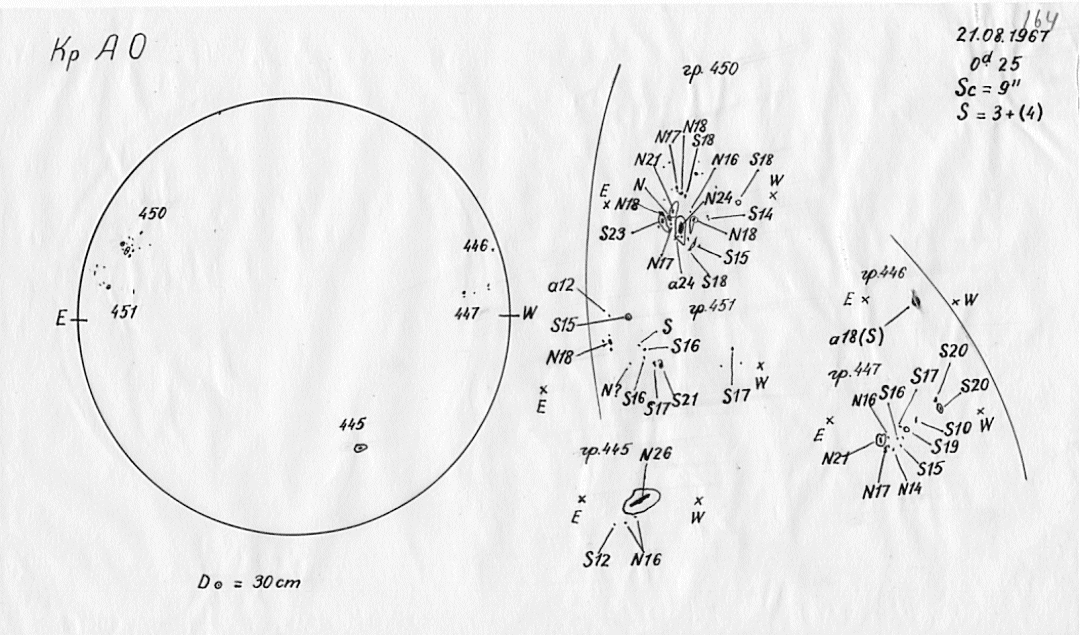 164
Кр А О
21.08.1967
0ᵈ 25
Sc = 9"
S = 3 + (4)
450
446
E
W
451
447
445
D⊙ = 30 cm
гр. 450
N18
N17
S18
N21
N16
S18
N
W
E
N18
N24
S14
S23
N18
N17
S15
a24
S18
a12
гр. 451
S15
S
S16
N18
N?
S16
S17
S21
S17
W
E
гр. 445
N26
E
W
S12
N16
гр. 446
E
W
a18(S)
S20
гр. 447
S17
S20
N16
S16
S10
W
E
S19
N21
S15
N17
N14